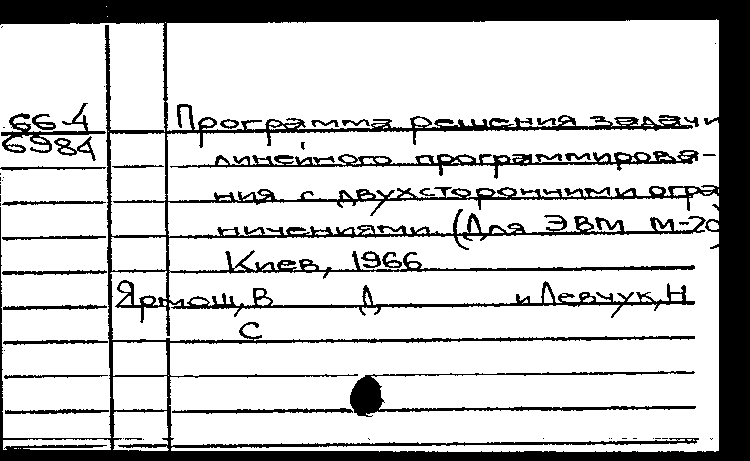 66-4
6984
Программа решения задачи
линейного программирова-
ния с двухсторонними огра
ничениями. (Для ЭВМ М-20)
Киев, 1966
Ярмош, В Д, и Левчук, Н
С